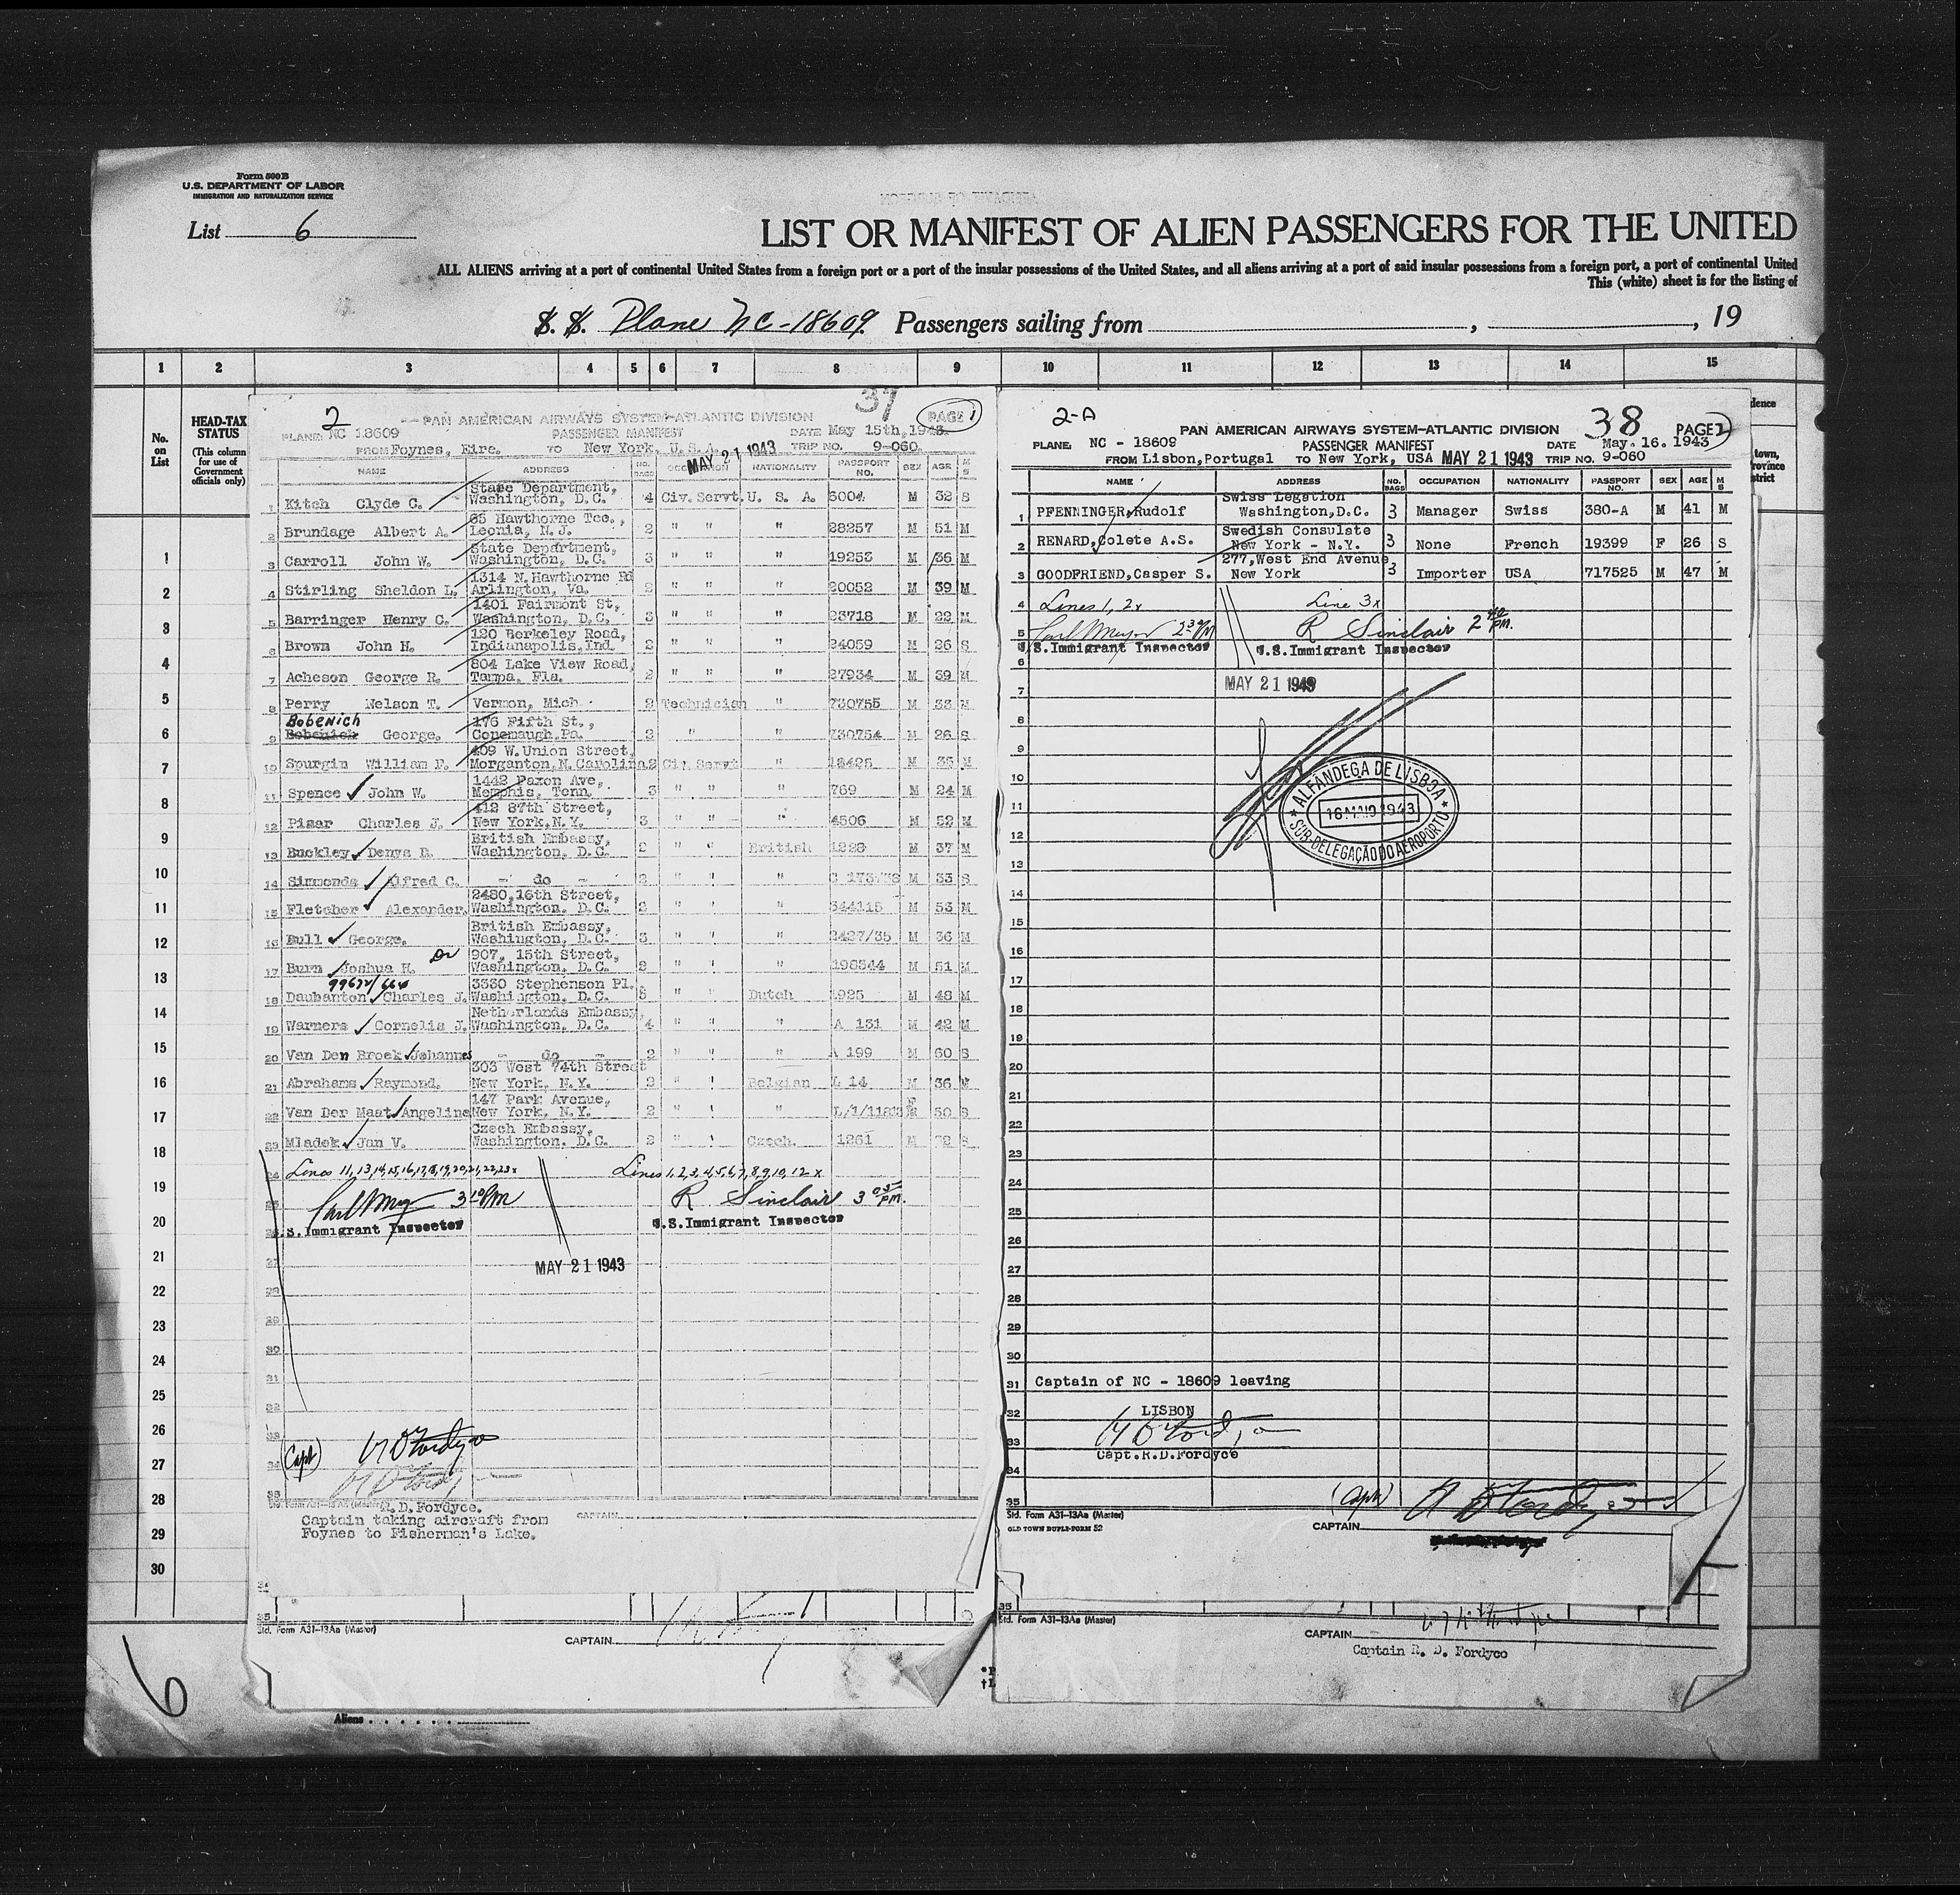 Form 500B
U.S. DEPARTMENT OF LABOR
IMMIGRATION AND NATURALIZATION SERVICE
List 6
LIST OR MANIFEST OF ALIEN PASSENGERS FOR THE UNITED
ALL ALIENS arriving at a port of continental United States from a foreign port or a port of the insular possessions of the United States, and all aliens arriving at a port of said insular possessions from a foreign port, a port of continental United
This (white) sheet is for the listing of
S. S. Plane NC-18609 Passengers sailing from , , 19
1 2 3 4 5 6 7 8 9 10 11 12 13 14 15
No. on List
HEAD-TAX STATUS
(This column for use of Government officials only)
1
2
3
4
5
6
7
8
9
10
11
12
13
14
15
16
17
18
19
20
21
22
23
24
25
26
27
28
29
30
2 37
PAN AMERICAN AIRWAYS SYSTEM-ATLANTIC DIVISION PAGE 1
PLANE: NC 18609 PASSENGER MANIFEST DATE May 15th, 1943.
FROM Foynes, Eire. TO New York, U.S.A. MAY 21 1943 TRIP NO. 9-060
NAME ADDRESS NO. BAGS OCCUPATION NATIONALITY PASSPORT NO. SEX AGE M S
1 Kitch Clyde C. State Department, Washington, D.C. 4 Civ. Servt. U. S. A. 5004 M 32 S
2 Brundage Albert A. 65 Hawthorne Tce., Leonia, N.J. 2 " " " 28257 M 51 M
3 Carroll John W. State Department, Washington, D.C. 3 " " " 19253 M 36 M
4 Stirling Sheldon L. 1314 N. Hawthorne Rd Arlington, Va. 2 " " " 20052 M 39 M
5 Barringer Henry C. 1401 Fairmont St, Washington, D.C. 3 " " " 23718 M 22 M
6 Brown John H. 120 Berkeley Road, Indianapolis, Ind. 2 " " " 24059 M 26 S
7 Acheson George R. 804 Lake View Road, Tampa, Fla. 2 " " " 27934 M 39 M
8 Perry Nelson T. Vermon, Mich. 2 Technician " 730755 M 33 M
Bobenich
9 George. 176 Fifth St., Conemaugh, Pa. 2 " " " 730754 M 26 S
10 Spurgin William F. 409 W. Union Street, Morganton, N. Carolina 2 Civ. Servt " 18425 M 35 M
11 Spence John W. 1442 Faxon Ave, Memphis, Tenn. 3 " " " 769 M 24 M
12 Pisar Charles J. 412 87th Street, New York, N.Y. 3 " " " 4506 M 52 M
13 Buckley Denys B. British Embassy, Washington, D.C. 2 " " British 1228 M 37 M
14 Simmonds Alfred C. - do - 2 " " " M 33 S
15 Fletcher Alexander. 2480, 16th Street, Washington, D.C. 2 " " " 344115 M 53 M
16 Bull George. British Embassy, Washington, D.C. 3 " " " 2427/35 M 36 M
17 Burn Joshua H. Dr 907, 15th Street, Washington, D.C. 2 " " " 198344 M 51 M
18 Daubanton Charles J. 3330 Stephenson Pl. Washington, D.C. 5 " " Dutch 1925 M 48 M
19 Warners Cornelis J. Netherlands Embassy, Washington, D.C. 4 " " " A 131 M 42 M
20 Van Den Broek Johannes - do - 2 " " " A 199 M 60 S
21 Abrahams Raymond. 303 West 74th Street New York, N.Y. 2 " " Belgian L 14 M 36 M
22 Van Der Maat Angeline 147 Park Avenue, New York, N.Y. 2 " " " F 50 S
23 Mladek Jan V. Czech Embassy, Washington, D.C. 2 " " Czech. 1261 M S
Lines 11, 13, 14, 15, 16, 17, 18, 19, 20, 21, 22, 23 x Lines 1, 2, 3, 4, 5, 6, 7, 8, 9, 10, 12 x
3 10 PM R Sinclair 3 05 PM.
U.S. Immigrant Inspector U.S. Immigrant Inspector
MAY 21 1943
(Capt) R D Fordyce
R. D. Fordyce.
Captain taking aircraft from
Foynes to Fisherman's Lake.
CAPTAIN
35
Std. Form A31-13Aa (Master)
CAPTAIN
6
Aliens
2-A 38
PAN AMERICAN AIRWAYS SYSTEM-ATLANTIC DIVISION PAGE 2
PLANE NC - 18609 PASSENGER MANIFEST DATE May. 16. 1943
FROM Lisbon, Portugal TO New York, USA MAY 21 1943 TRIP NO. 9-060
NAME ADDRESS NO. BAGS OCCUPATION NATIONALITY PASSPORT NO. SEX AGE M S
1 PFENNINGER, Rudolf Swiss Legation Washington, D.C. 3 Manager Swiss 380-A M 41 M
2 RENARD, Colete A.S. Swedish Consulate New York - N.Y. 3 None French 19399 F 26 S
3 GOODFRIEND, Casper S. 277, West End Avenue New York 3 Importer USA 717525 M 47 M
4 Lines 1, 2x Line 3x
5 2 30 PM R Sinclair 2 40 PM.
U.S. Immigrant Inspector U.S. Immigrant Inspector
6
MAY 21 1943
7
8
9
10
11
12
13
14
15
16
17
18
19
20
21
22
23
24
25
26
27
28
29
30
ALFANDEGA DE LISBOA
16 MAIO 1943
SUB-DELEGAÇÃO DO AEROPORTO
31 Captain of NC - 18609 leaving
32 LISBON
33 R D Fordyce
Capt. R.D. Fordyce
34
35 (Capt) R D Fordyce
Std. Form A31-13Aa (Master)
OLD TOWN DUPLI-FORM 52
CAPTAIN
35
Std. Form A31-13Aa (Master)
CAPTAIN
Captain R. D. Fordyce